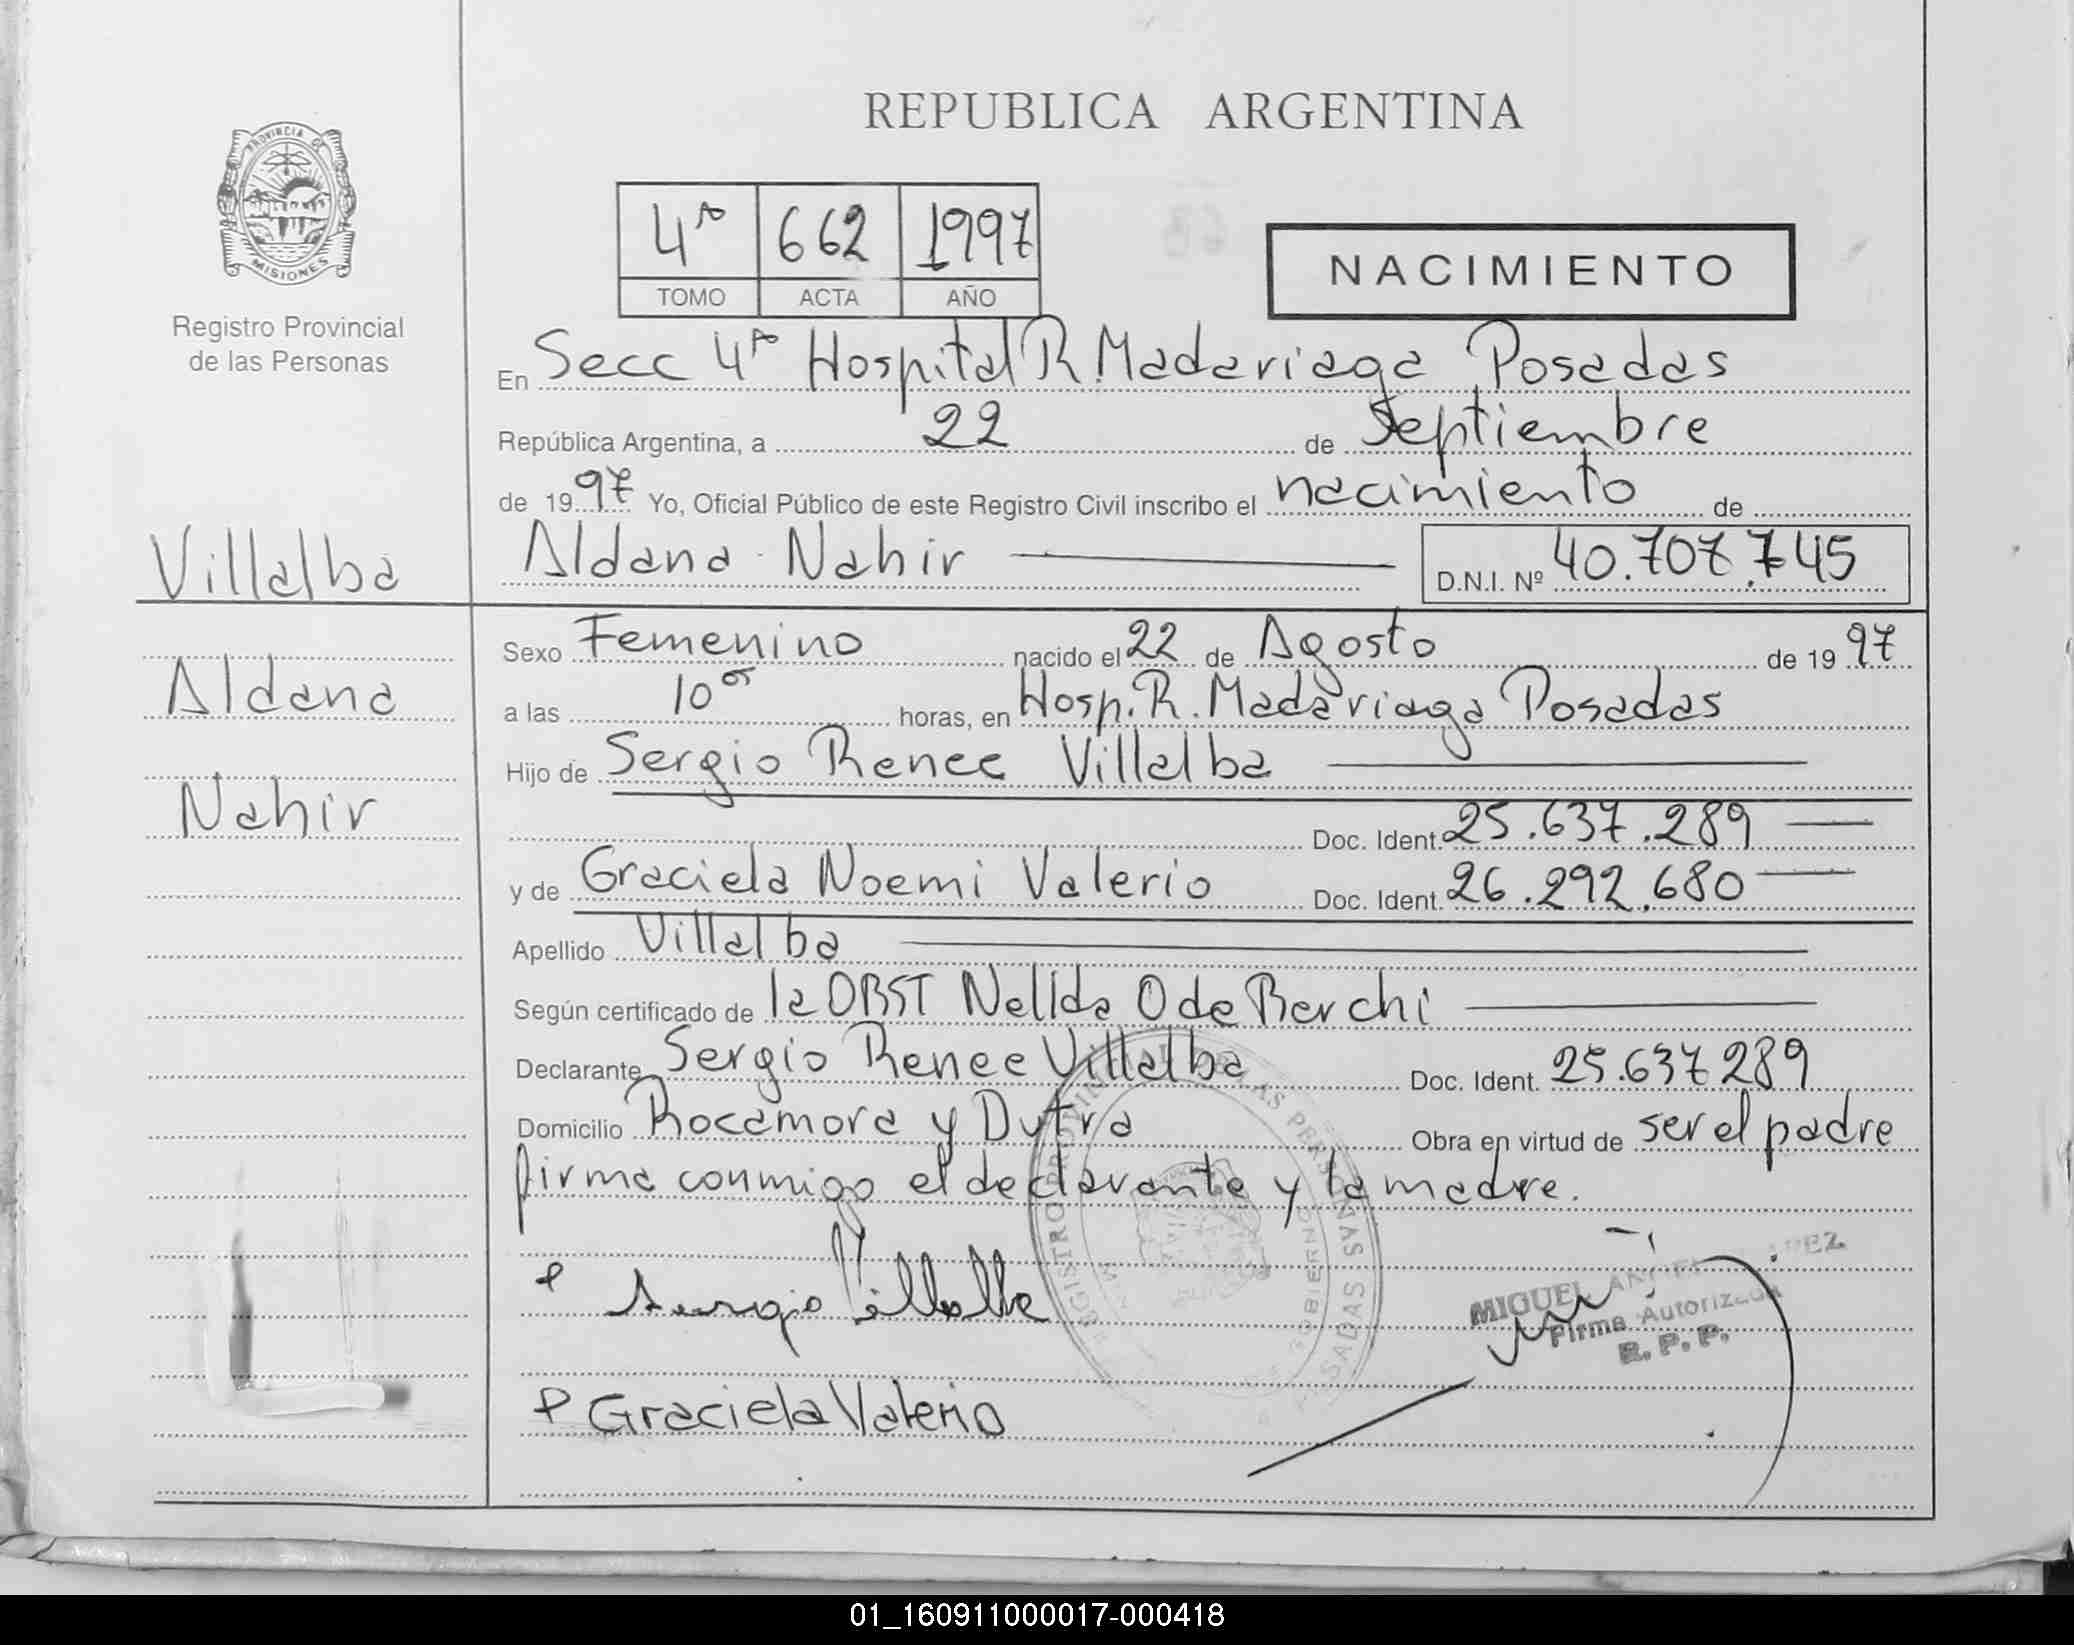 REPUBLICA ARGENTINA
PROVINCIA DE
MISIONES
Registro Provincial
de las Personas
4ª 662 1997
TOMO ACTA AÑO
NACIMIENTO
En Secc 4ª Hospital R. Madariaga Posadas
República Argentina, a 22 de Septiembre
de 1997 Yo, Oficial Público de este Registro Civil inscribo el nacimiento de
Villalba
Aldana Nahir D.N.I. Nº 40.707.745
Sexo Femenino nacido el 22 de Agosto de 1997
Aldana
a las 10 horas, en Hosp. R. Madariaga Posadas
Hijo de Sergio Renee Villalba
Nahir
Doc. Ident. 25.637.289
y de Graciela Noemi Valerio Doc. Ident. 26.292.680
Apellido Villalba
Según certificado de la OBST Nelida O de Berchi
Declarante Sergio Renee Villalba Doc. Ident. 25.637289
Domicilio Rocamora y Dutra Obra en virtud de ser el padre
firma conmigo el declarante y la madre.
Sergio Villalba
MIGUEL ANGEL
Firma Autorizada
R. P. P.
Graciela Valerio
REGISTRO PROVINCIAL DE LAS PERSONAS
GOBIERNO
POSADAS
01_160911000017-000418